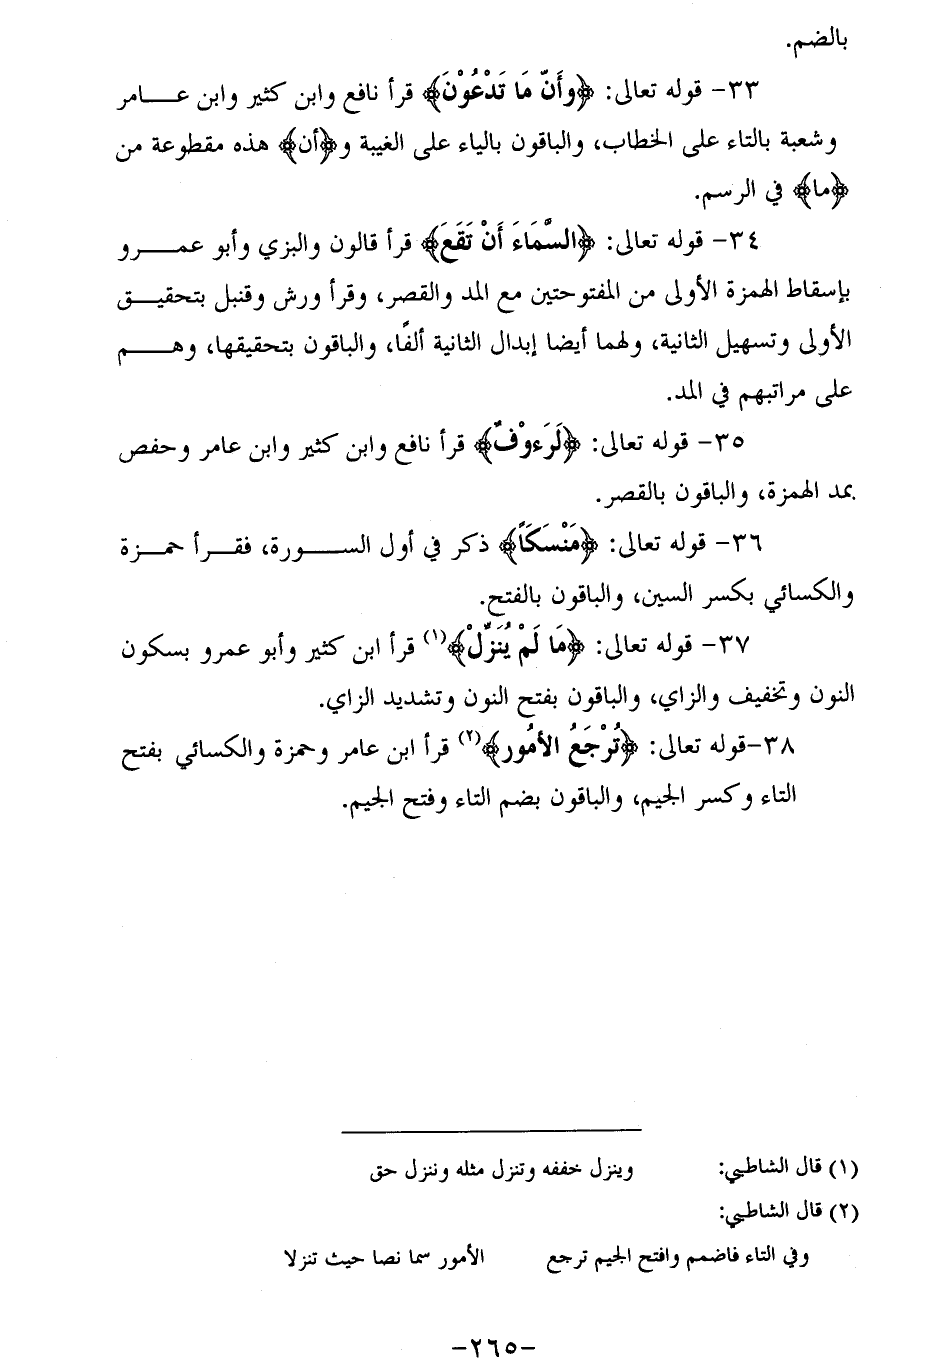 بالضم.
٣٣- قوله تعالى: ﴿وأَنَّ مَا تَدْعُوْنَ﴾ قرأ نافع وابن كثير وابن عـــامر
وشعبة بالتاء على الخطاب، والباقون بالياء على الغيبة و﴿أن﴾ هذه مقطوعة من
﴿ما﴾ في الرسم.
٣٤- قوله تعالى: ﴿السَّمَاءَ أَنْ تَقَعَ﴾ قرأ قالون والبزي وأبو عمـــرو
بإسقاط الهمزة الأولى من المفتوحتين مع المد والقصر، وقرأ ورش وقنبل بتحقيـــق
الأولى وتسهيل الثانية، ولهما أيضا إبدال الثانية ألفًا، والباقون بتحقيقها، وهـــم
على مراتبهم في المد.
٣٥- قوله تعالى: ﴿لَرَءوْفٌ﴾ قرأ نافع وابن كثير وابن عامر وحفص
بمد الهمزة، والباقون بالقصر.
٣٦- قوله تعالى: ﴿مَنْسَكَاً﴾ ذكر في أول الســـورة، فقـــرأ حمـــزة
والكسائي بكسر السين، والباقون بالفتح.
٣٧- قوله تعالى: ﴿مَا لَمْ يُنَزِّلْ﴾(١) قرأ ابن كثير وأبو عمرو بسكون
النون وتخفيف والزاي، والباقون بفتح النون وتشديد الزاي.
٣٨-قوله تعالى: ﴿تُرْجَعُ الأمُور﴾(٢) قرأ ابن عامر وحمزة والكسائي بفتح
التاء وكسر الجيم، والباقون بضم التاء وفتح الجيم.
(١) قال الشاطبي: وينزل خففه وتنزل مثله وننزل حق
(٢) قال الشاطبي:
وفي التاء فاضمم وافتح الجيم ترجع الأمور سما نصا حيث تنزلا
-٢٦٥-